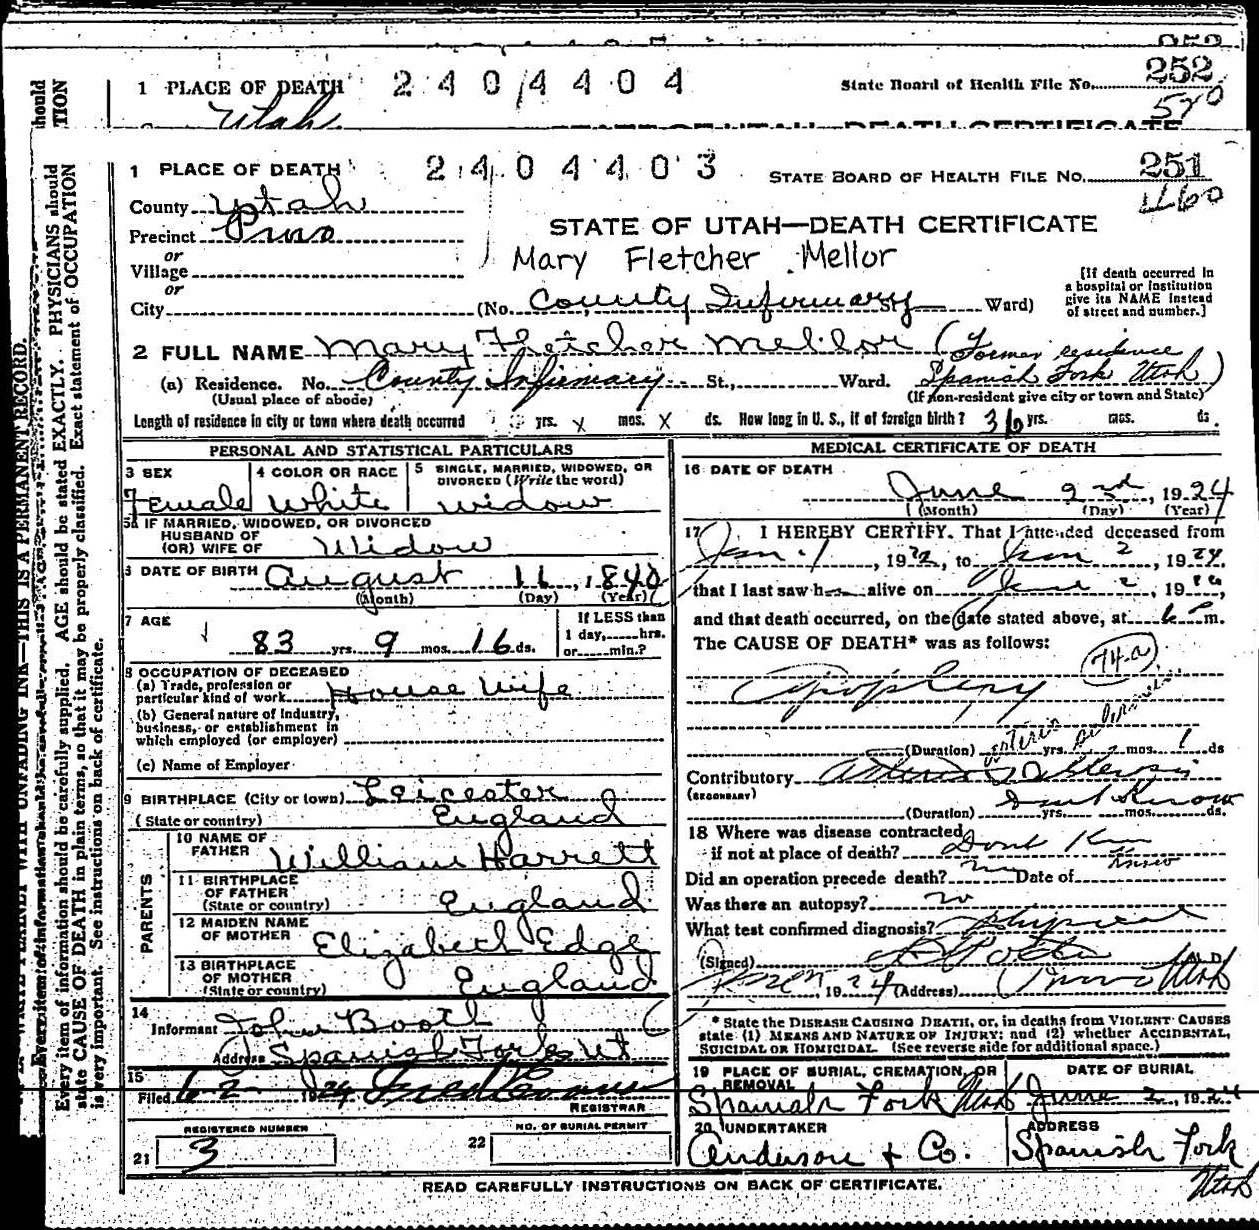 252
1 PLACE OF DEATH 2404404 State Board of Health File No. 252
Utah 570
STATE OF UTAH—DEATH CERTIFICATE
1 PLACE OF DEATH 2404403 STATE BOARD OF HEALTH FILE NO. 251
460
County Utah
Precinct Provo
STATE OF UTAH—DEATH CERTIFICATE
or
Village
Mary Fletcher Mellor
or
City (No. County Infirmary St. Ward)
[If death occurred in
a hospital or institution
give its NAME instead
of street and number.]
2 FULL NAME Mary Fletcher Mellor (Former residence
Spanish Fork Utah)
(a) Residence. No. County Infirmary St., Ward.
(Usual place of abode) (If non-resident give city or town and State)
Length of residence in city or town where death occurred yrs. x mos. x ds. How long in U. S., if of foreign birth? 36 yrs. mos. ds.
PERSONAL AND STATISTICAL PARTICULARS
3 SEX Female
4 COLOR OR RACE White
5 SINGLE, MARRIED, WIDOWED, OR
DIVORCED (Write the word)
widow
5a IF MARRIED, WIDOWED, OR DIVORCED
HUSBAND OF
(OR) WIFE OF Widow
6 DATE OF BIRTH August 11, 1840
(Month) (Day) (Year)
7 AGE 83 yrs. 9 mos. 16 ds.
If LESS than
1 day, hrs.
or min.?
8 OCCUPATION OF DECEASED
(a) Trade, profession or
particular kind of work House Wife
(b) General nature of industry,
business, or establishment in
which employed (or employer)
(c) Name of Employer
9 BIRTHPLACE (City or town) Leicester
(State or country) England
PARENTS
10 NAME OF
FATHER William Harrett
11 BIRTHPLACE
OF FATHER
(State or country) England
12 MAIDEN NAME
OF MOTHER Elizabeth Edge
13 BIRTHPLACE
OF MOTHER
(State or country) England
14
Informant John Booth
Address Spanish Fork Ut
15
Filed 6-2- 1924
REGISTRAR
REGISTERED NUMBER
21 3
22 NO. OF BURIAL PERMIT
MEDICAL CERTIFICATE OF DEATH
16 DATE OF DEATH
June 2nd, 1924
(Month) (Day) (Year)
17 I HEREBY CERTIFY, That I attended deceased from
Jan. 1, 1922, to June 2, 1924
that I last saw h alive on June 2, 19
and that death occurred, on the date stated above, at 6 P m.
The CAUSE OF DEATH* was as follows:
74-a
Apoplexy
(Duration) yrs. mos. 1 ds
Contributory Arterio Sclerosis
(SECONDARY)
Dont Know
(Duration) yrs. mos. ds.
18 Where was disease contracted
if not at place of death? Dont Know
Did an operation precede death? no Date of
Was there an autopsy? no
What test confirmed diagnosis? physical
(Signed) M.D.
1924 (Address) Provo Utah
* State the DISEASE CAUSING DEATH, or, in deaths from VIOLENT CAUSES
state (1) MEANS AND NATURE OF INJURY; and (2) whether ACCIDENTAL,
SUICIDAL OR HOMICIDAL. (See reverse side for additional space.)
19 PLACE OF BURIAL, CREMATION, OR
REMOVAL
Spanish Fork Utah
DATE OF BURIAL
June 2, 1924
20 UNDERTAKER
Anderson + Co.
ADDRESS
Spanish Fork
Utah
READ CAREFULLY INSTRUCTIONS ON BACK OF CERTIFICATE.
WRITE PLAINLY WITH UNFADING INK—THIS IS A PERMANENT RECORD.
Every item of information should be carefully supplied. AGE should be stated EXACTLY. PHYSICIANS should
state CAUSE OF DEATH in plain terms, so that it may be properly classified. Exact statement of OCCUPATION
is very important. See instructions on back of certificate.